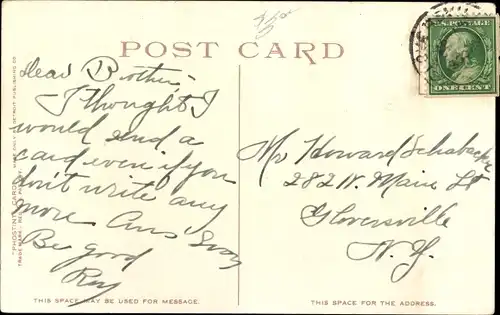 POST CARD
U.S. POSTAGE
ONE CENT
Dear Brother,
I thought I
would send a
card even if you
don't write any
more Ans Soon
Be good
Ray
Mr Howard Schabacker
282 N. Main St
Gloversville
N.Y.
THIS SPACE MAY BE USED FOR MESSAGE.
THIS SPACE FOR THE ADDRESS.